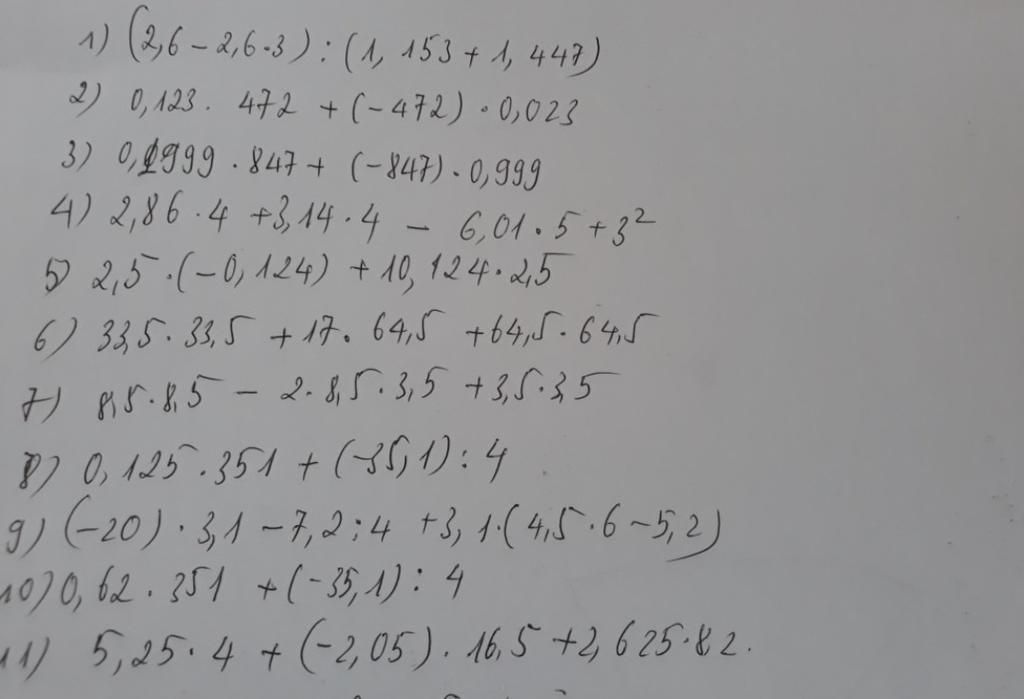 1) (2,6 - 2,6·3) : (1, 153 + 1, 447)
2) 0,123 · 472 + (-472) · 0,023
3) 0,1999 · 847 + (-847) · 0,999
4) 2,86 · 4 + 3,14 · 4 - 6,01 · 5 + 3²
5) 2,5 · (-0, 124) + 10, 124 · 2,5
6) 33,5 · 33,5 + 17 · 64,5 + 64,5 · 64,5
7) 8,5 · 8,5 - 2 · 8,5 · 3,5 + 3,5 · 3,5
8) 0, 125 · 351 + (-35,1) : 4
9) (-20) · 3,1 - 7,2 : 4 + 3, 1 · (4,5 · 6 - 5,2)
10) 0,62 · 351 + (-35,1) : 4
11) 5,25 · 4 + (-2,05) · 16,5 + 2,625 · 82.